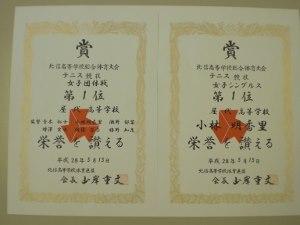 賞
北信高等学校総合体育大会
テニス競技
女子団体戦
第1位
屋代高等学校
栄誉を讃える
平成28年5月15日
北信高等学校体育連盟
会長
賞
北信高等学校総合体育大会
テニス競技
女子シングルス
第1位
屋代高等学校
小林 明香里
栄誉を讃える
平成28年5月15日
北信高等学校体育連盟
会長